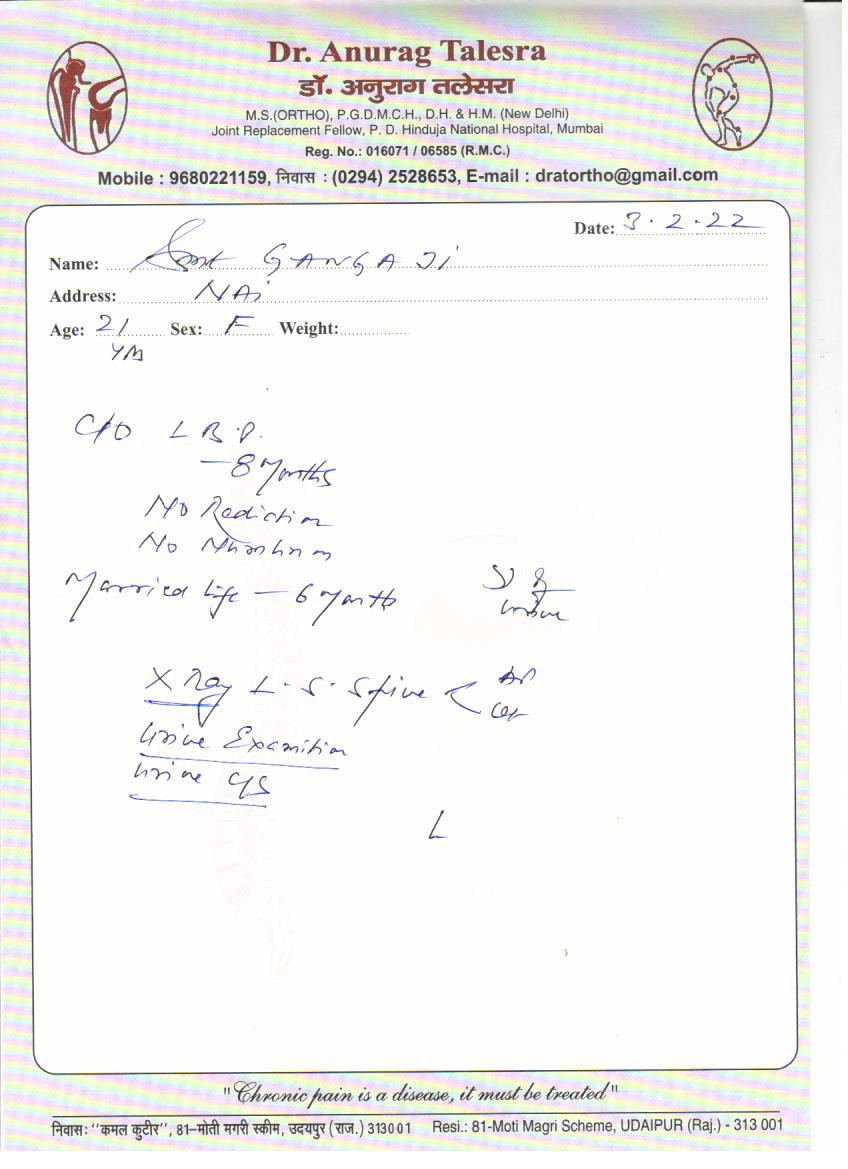 Dr. Anurag Talesra
डॉ. अनुराग तलेसरा
M.S.(ORTHO), P.G.D.M.C.H., D.H. & H.M. (New Delhi)
Joint Replacement Fellow, P. D. Hinduja National Hospital, Mumbai
Reg. No.: 016071 / 06585 (R.M.C.)
Mobile : 9680221159, निवास : (0294) 2528653, E-mail : dratortho@gmail.com
Date: 3.2.22
Name: Smt GANGA JI
Address: NAi
Age: 21 Sex: F Weight:
C/O L B P.
- 8 Months
No Rediction
No
Married life - 6 Month
urine
X Ray L.S. Spine < AP
Urine Examition
Urine C/S
L
"Chronic pain is a disease, it must be treated"
निवास: ''कमल कुटीर'', 81–मोती मगरी स्कीम, उदयपुर (राज.) 313001 Resi.: 81-Moti Magri Scheme, UDAIPUR (Raj.) - 313 001